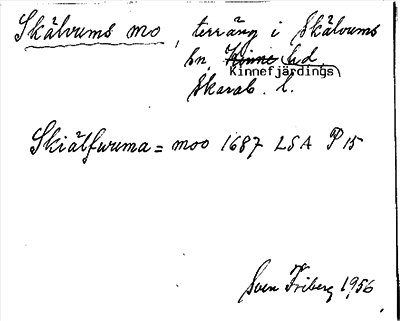 Skälvums mo, terräng i Skälvums
sn, Kinne hd
Kinnefjärdings
Skarab. l.
Skiälfwuma = moo 1687 LSA P 15
Sven Friberg 1956